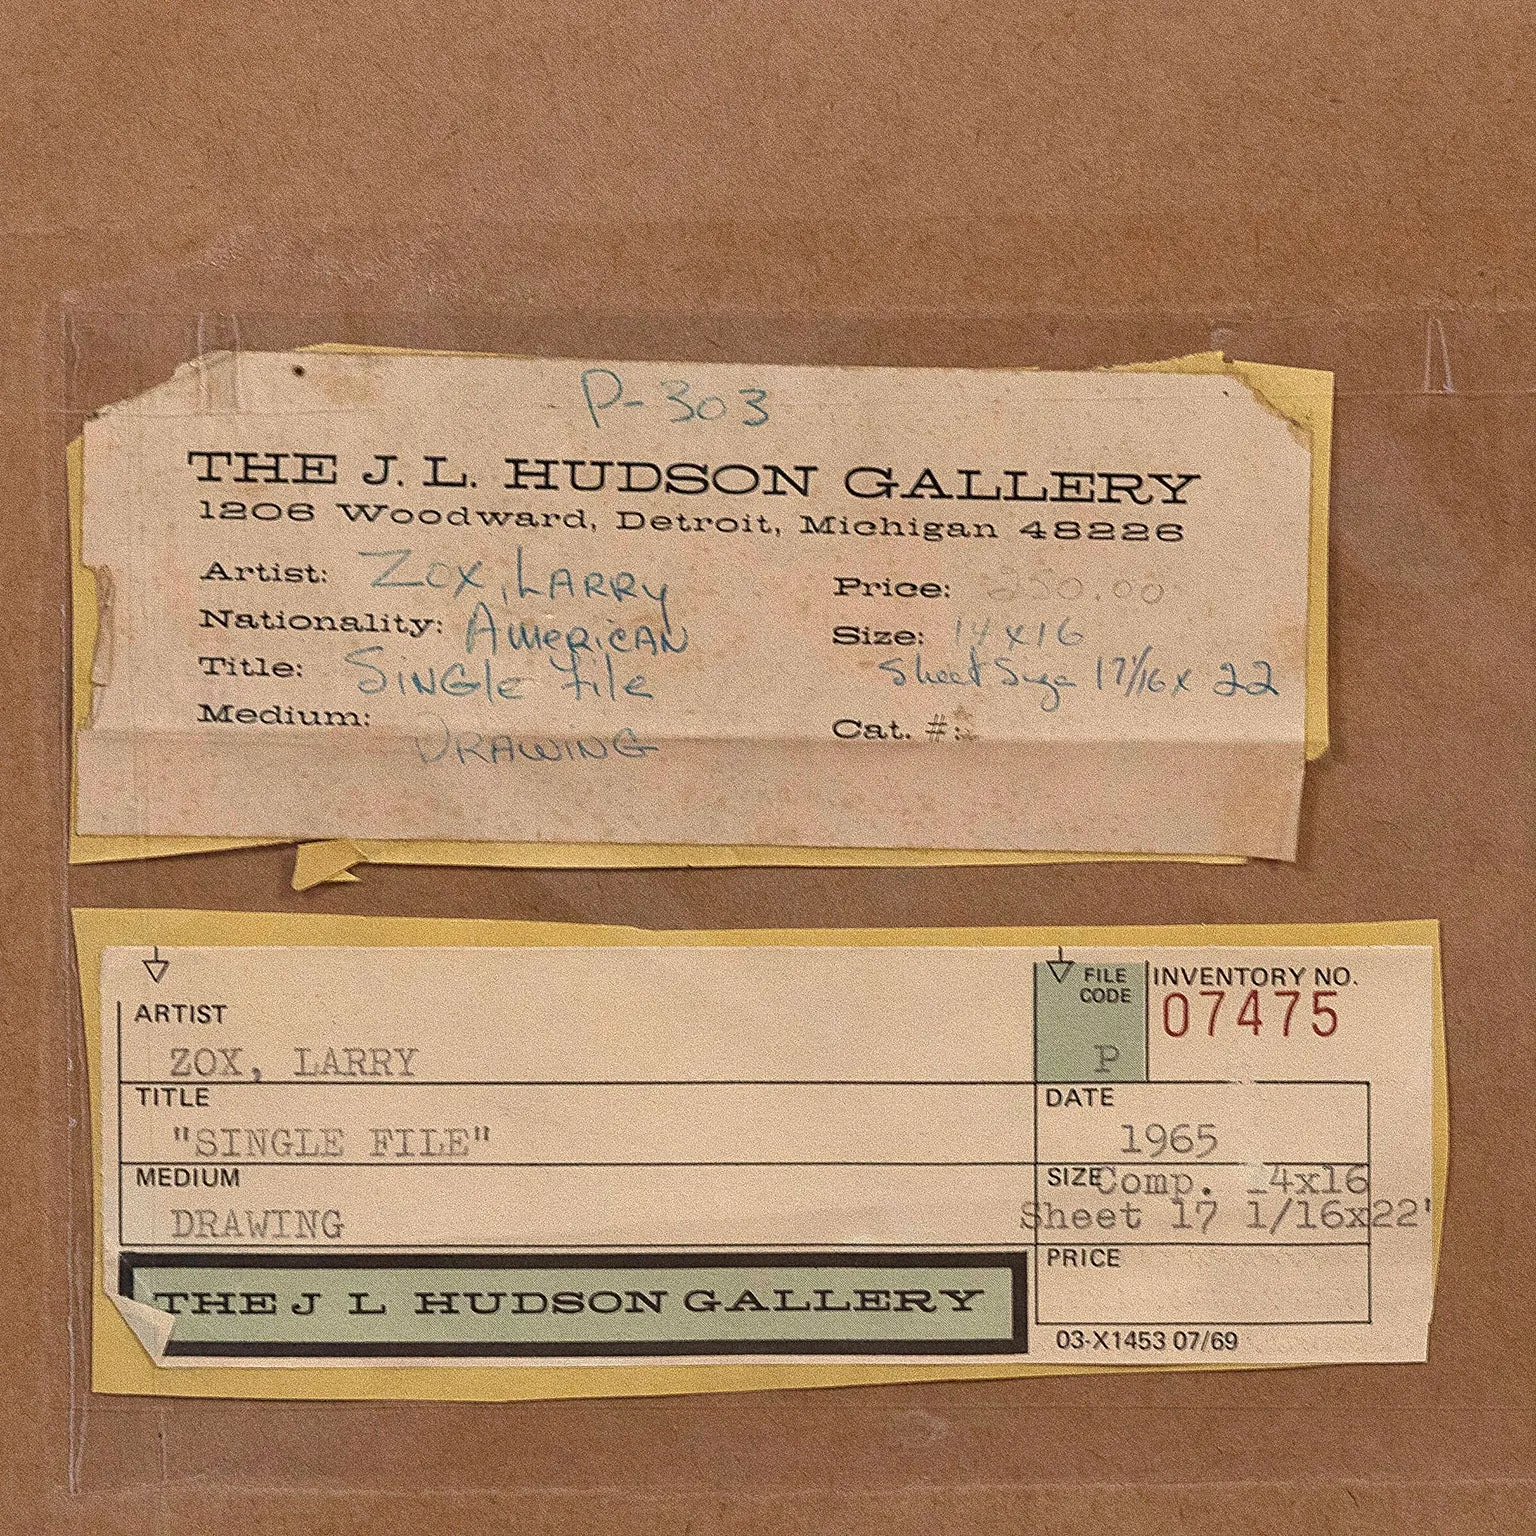 P-303
THE J. L. HUDSON GALLERY
1206 Woodward, Detroit, Michigan 48226
Artist: Zox, LARRY
Nationality: AmericAN
Title: SiNGle file
Medium: DRAWING
Price: 250.00
Size: 14 x 16
Sheet Size 17 1/16 x 22
Cat. #:
ARTIST
ZOX, LARRY
TITLE
"SINGLE FILE"
MEDIUM
DRAWING
THE J L HUDSON GALLERY
FILE CODE
P
INVENTORY NO.
07475
DATE
1965
SIZE Comp. 14x16
Sheet 17 1/16x22"
PRICE
03-X1453 07/69